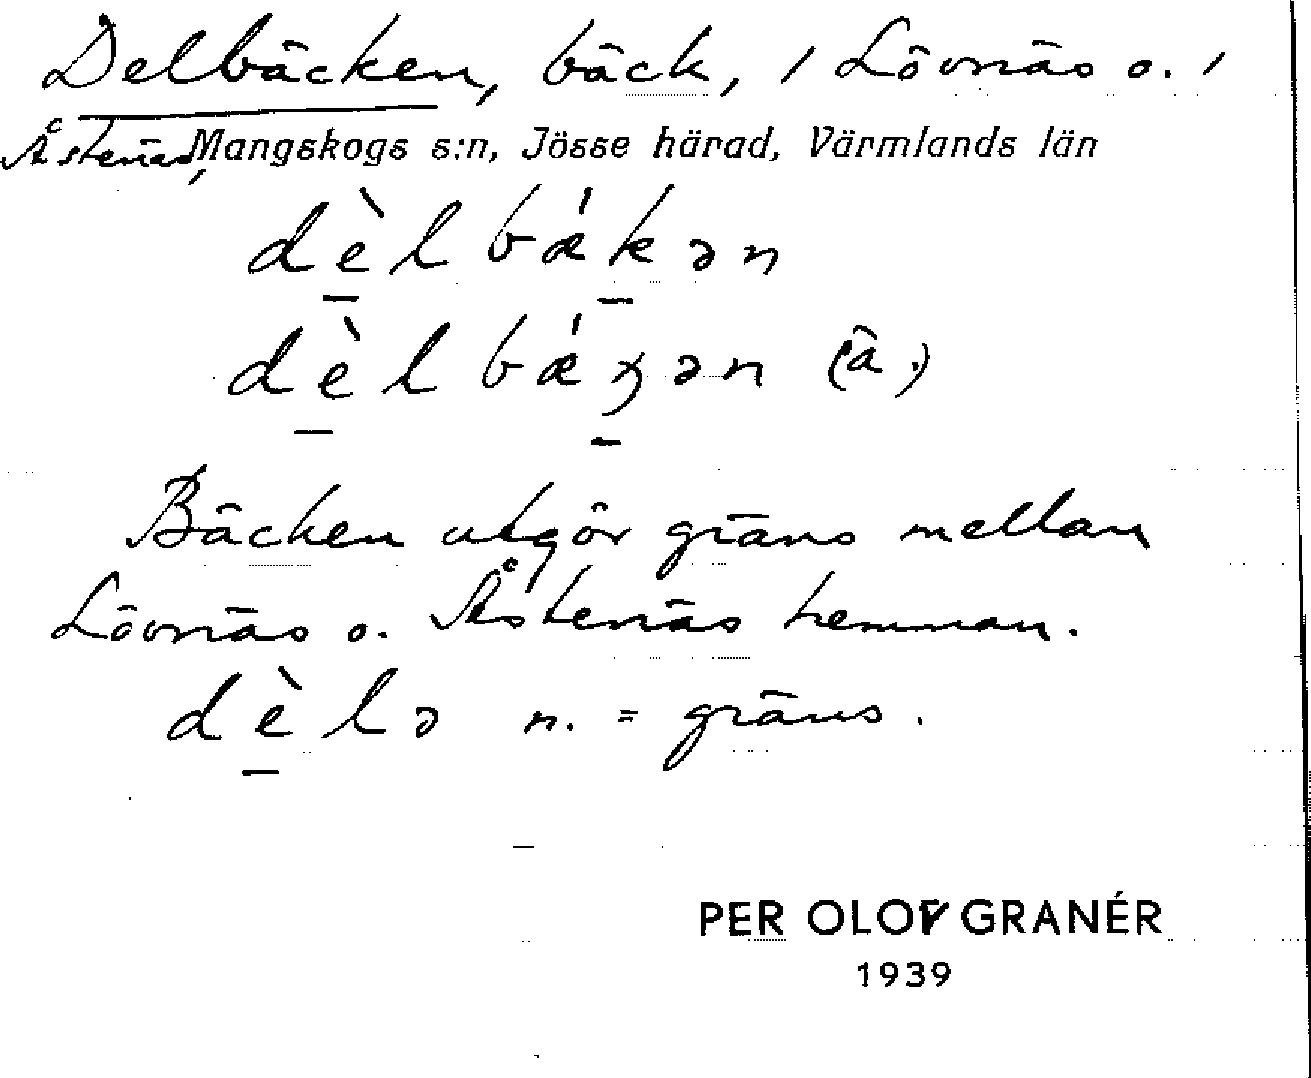 Delbäcken, bäck, / Lövnäs o. /
Åstenäs, Mangskogs s:n, Jösse härad, Värmlands län
dèlbǽkən
dèlbǽꭓən (ä.)
Bäcken utgör gräns mellan
Lövnäs o. Åstenäs hemman.
dèlə n. = gräns.
PER OLOF GRANÉR
1939